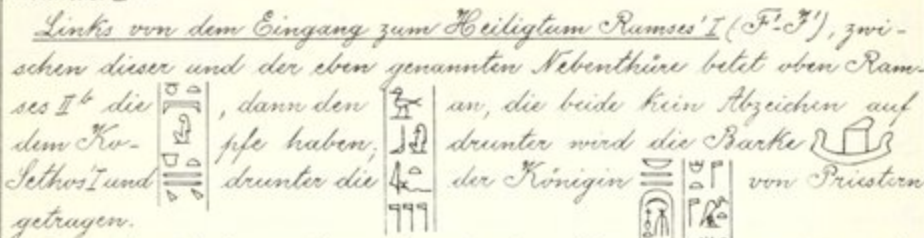 Links von dem Eingang zum Heiligtum Ramses' I (F'-J'), zwi-
schen dieser und der eben genannten Nebenthüre betet oben Ram-
ses II b die , dann den an, die beide kein Abzeichen auf
dem Ko- pfe haben; drunter wird die Barke
Sethos' I und drunter die der Königin von Priestern
getragen.